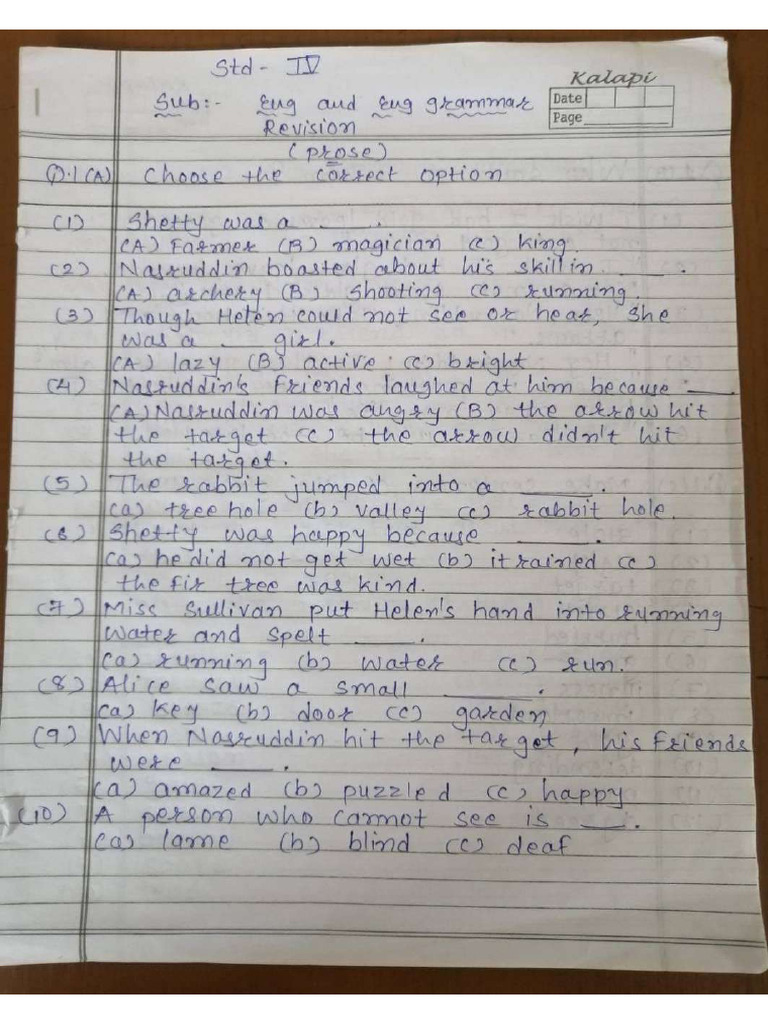 Std - IV
Kalapi
Date
Page
Sub:- Eng and Eng grammar
Revision
(prose)
Q.1 (A) Choose the correct option
(1) Shetty was a _____.
(A) Farmer (B) magician (c) king.
(2) Nasruddin boasted about his skill in ____.
(A) archery (B) Shooting (c) running.
(3) Though Helen could not see or hear, She
was a __ girl.
(A) lazy (B) active (c) bright
(4) Nasruddin's Friends laughed at him because ___.
(A) Nasruddin was angry (B) the arrow hit
the target (c) the arrow didn't hit
the target.
(5) The rabbit jumped into a _____.
(a) tree hole (b) valley (c) rabbit hole.
(6) Shetty was happy because _____.
(a) he did not get wet (b) it rained (c)
the fir tree was kind.
(7) Miss Sullivan put Helen's hand into running
water and spelt ____.
(a) running (b) water (c) run.
(8) Alice saw a small ______.
(a) key (b) door (c) garden
(9) When Nasruddin hit the target, his Friends
were _____.
(a) amazed (b) puzzled (c) happy
(10) A person who cannot see is ___.
(a) lame (b) blind (c) deaf